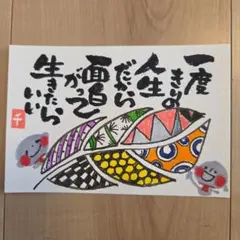 一度
きりの
人生
だから
面白
がって
生きたら
いい
千